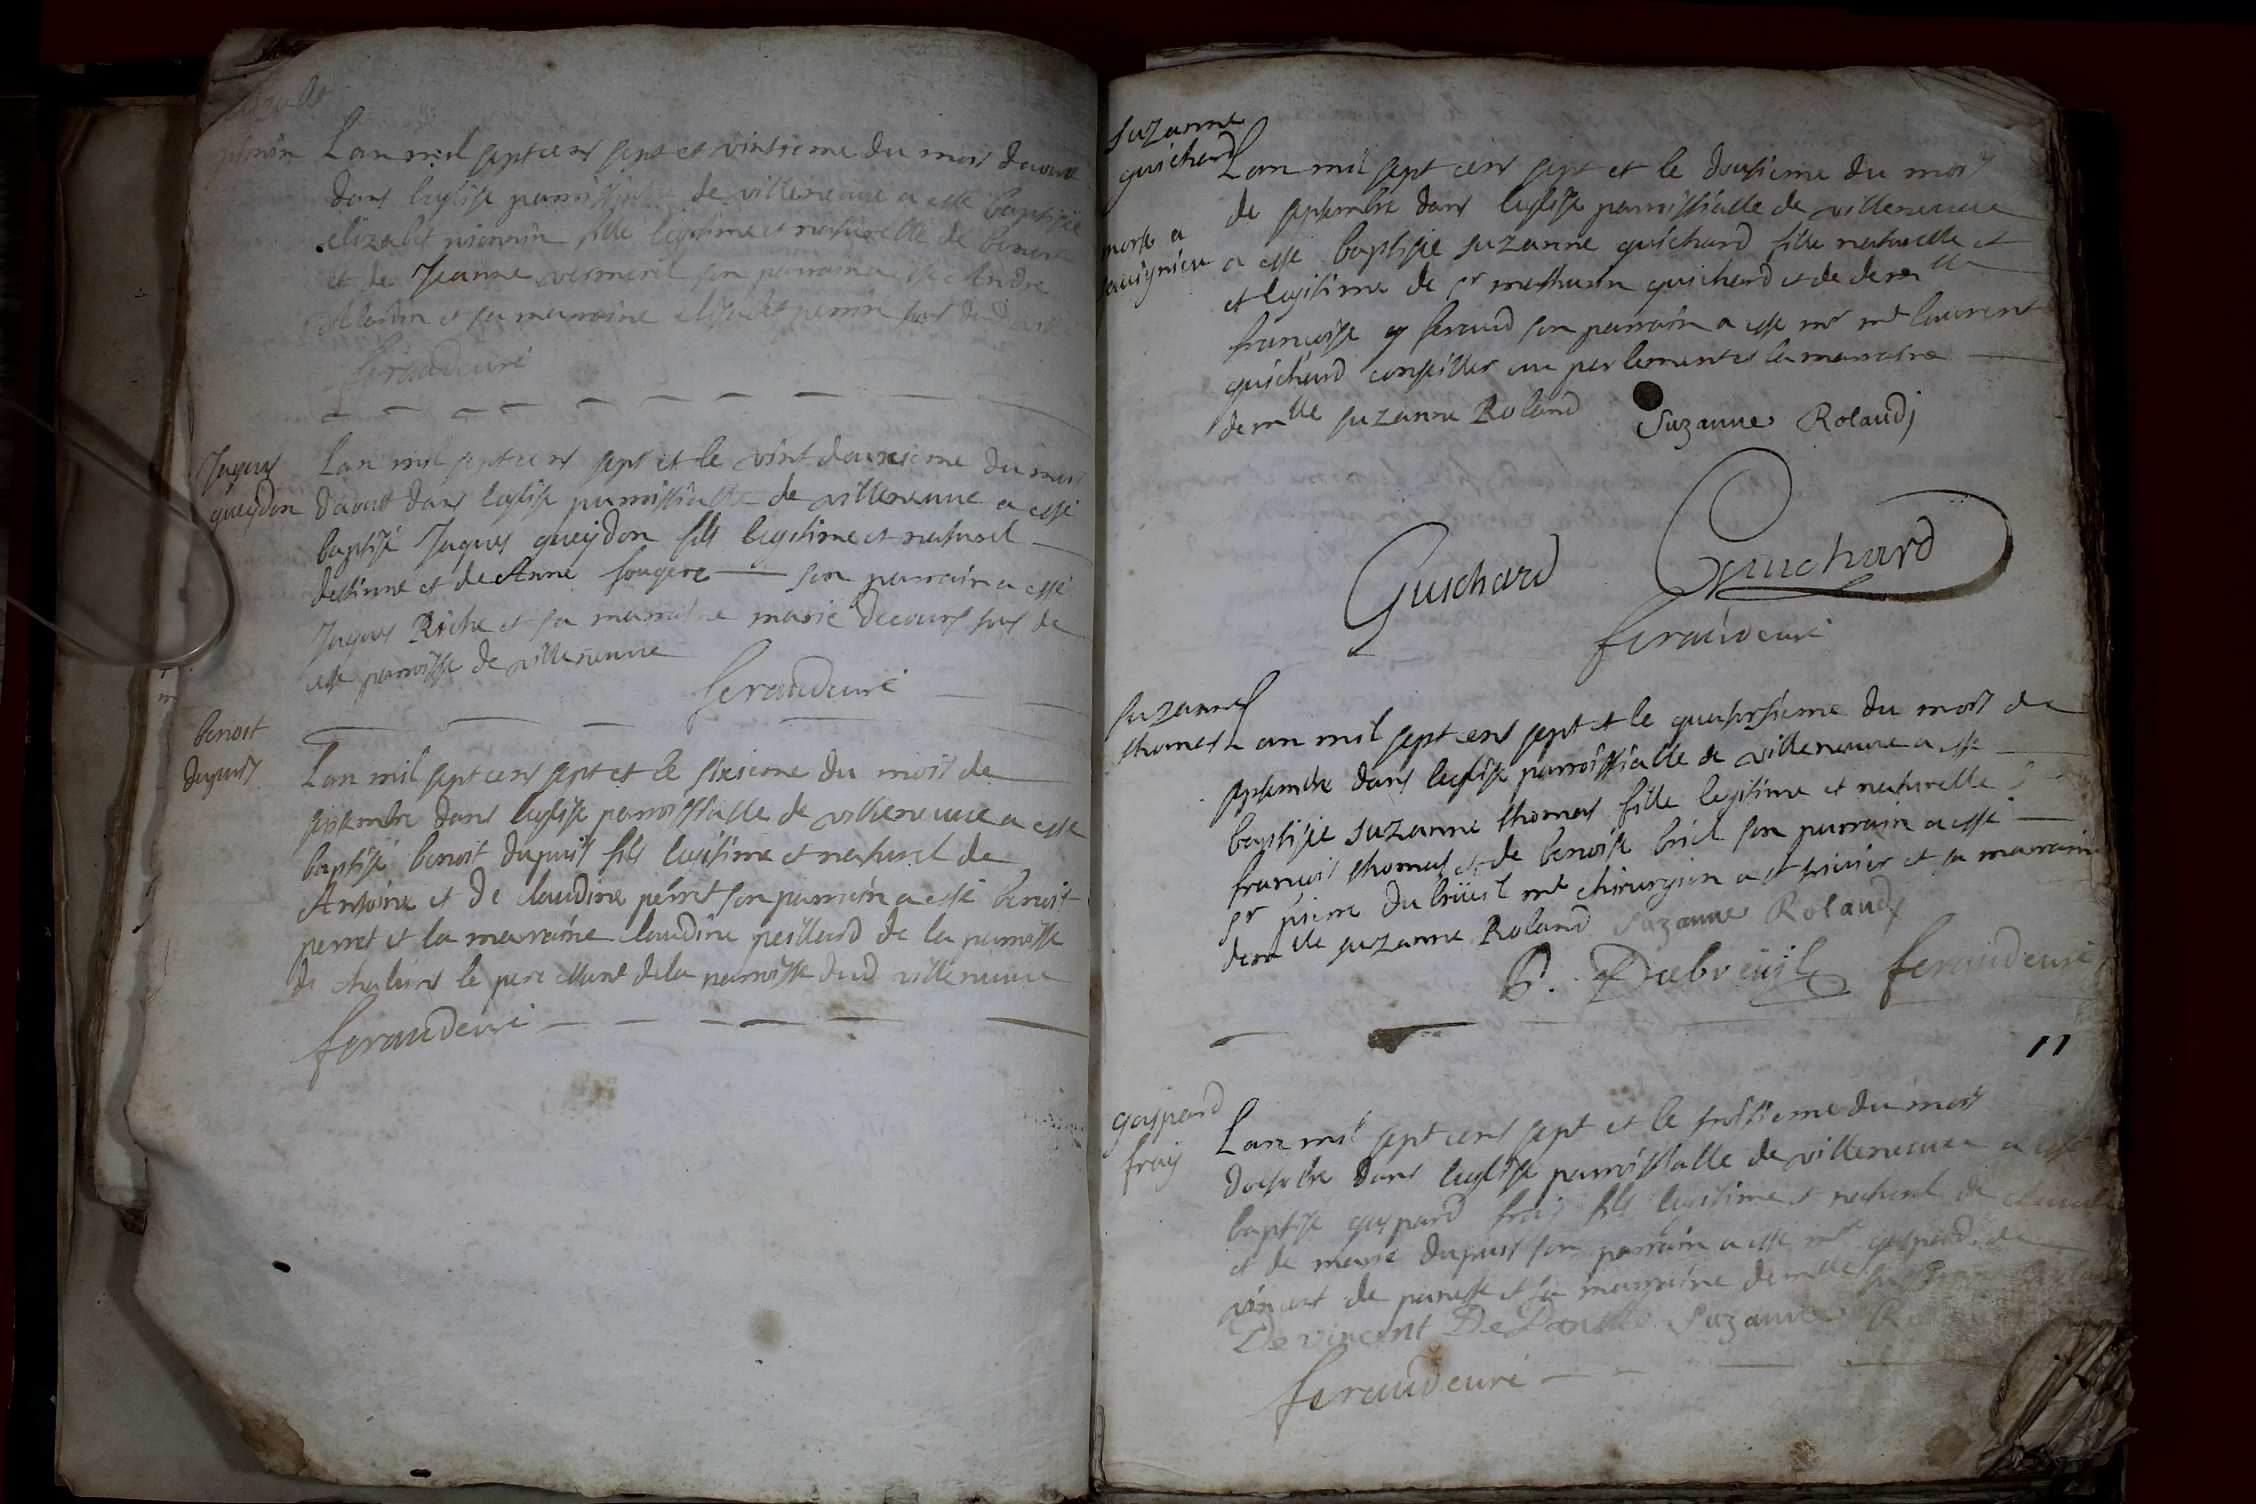 Lan mil sept cens sept et vintieme du mois daoust
dans leglise parroissialle de villeneuve a esté baptisée
elizabet fille legitime et naturelle de benoist
et de Jeanne vermorel son parrain a esté Andre
et sa marraine elizabet perrin
feraud curé
Jaques
queydon
Lan mil sept cens sept et le vint deuxieme du mois
daoust dans leglise parroissialle de villeneuve a esté
baptisé Jaques queydon fils legitime et naturel
destienne et de Anne fougere son parrain a esté
Jaques Riche et sa marraine marie decours tous de
cette parroisse de villeneuve
feraud curé
benoit
dupuis
Lan mil sept cens sept et le sixieme du mois de
septembre dans leglise parroissialle de villeneuve a esté
baptisé benoit dupuis fils legitime et naturel de
Antoine et de claudine perret son parrain a esté benoit
perret et la marraine claudine peillard de la parroisse
de chaleins le pere estant de la parroisse dud villeneuve
feraud curé
suzanne
guichard
morte a
savignieu
Lan mil sept cens sept et le dousieme du mois
de septembre dans leglise parroissialle de villeneuve
a esté baptisée suzanne guichard fille naturelle et
et legitime de sr mathurin guichard et de demlle
francoise feraud son parrain a esté mr me laurent
guichard conseiller au parlement et la marraine
demlle suzanne Roland
Suzanne Roland
Guichard
Guichard
feraud curé
suzanne
thomas
Lan mil sept cens sept et le quatorsieme du mois de
septembre dans leglise parroissialle de villeneuve a esté
baptisée suzanne thomas fille legitime et naturelle
francois thomas et de benoite briel son parrain a esté
sr pierre dubrüeil me chirurgien a st trivier et sa marraine
demlle suzanne Roland Suzanne Roland
P. Dubreüil feraud curé
11
gaspard
fray
Lan mil sept cens sept et le troisieme du mois
doctobre dans leglise parroissialle de villeneuve a esté
baptisé gaspard fray fils legitime et naturel de
et de marie dupuis son parrain a esté mre gaspard de
vincent de panette et sa marraine demlle
De vincent De Panette Suzanne
feraud curé